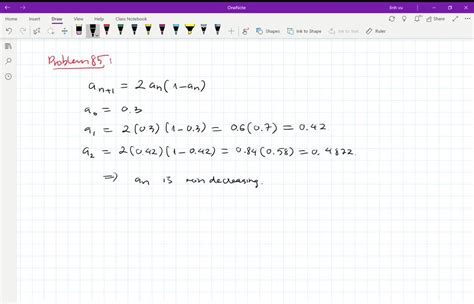 OneNote
linh vu
File Home Insert Draw View Help Class Notebook
Shapes Ink to Shape Ink to Text
Problem 85:
a_{n+1} = 2a_n(1-a_n)
a_0 = 0.3
a_1 = 2(0.3)(1-0.3) = 0.6(0.7) = 0.42
a_2 = 2(0.42)(1-0.42) = 0.84(0.58) = 0.4872
⇒ a_n is nondecreasing.